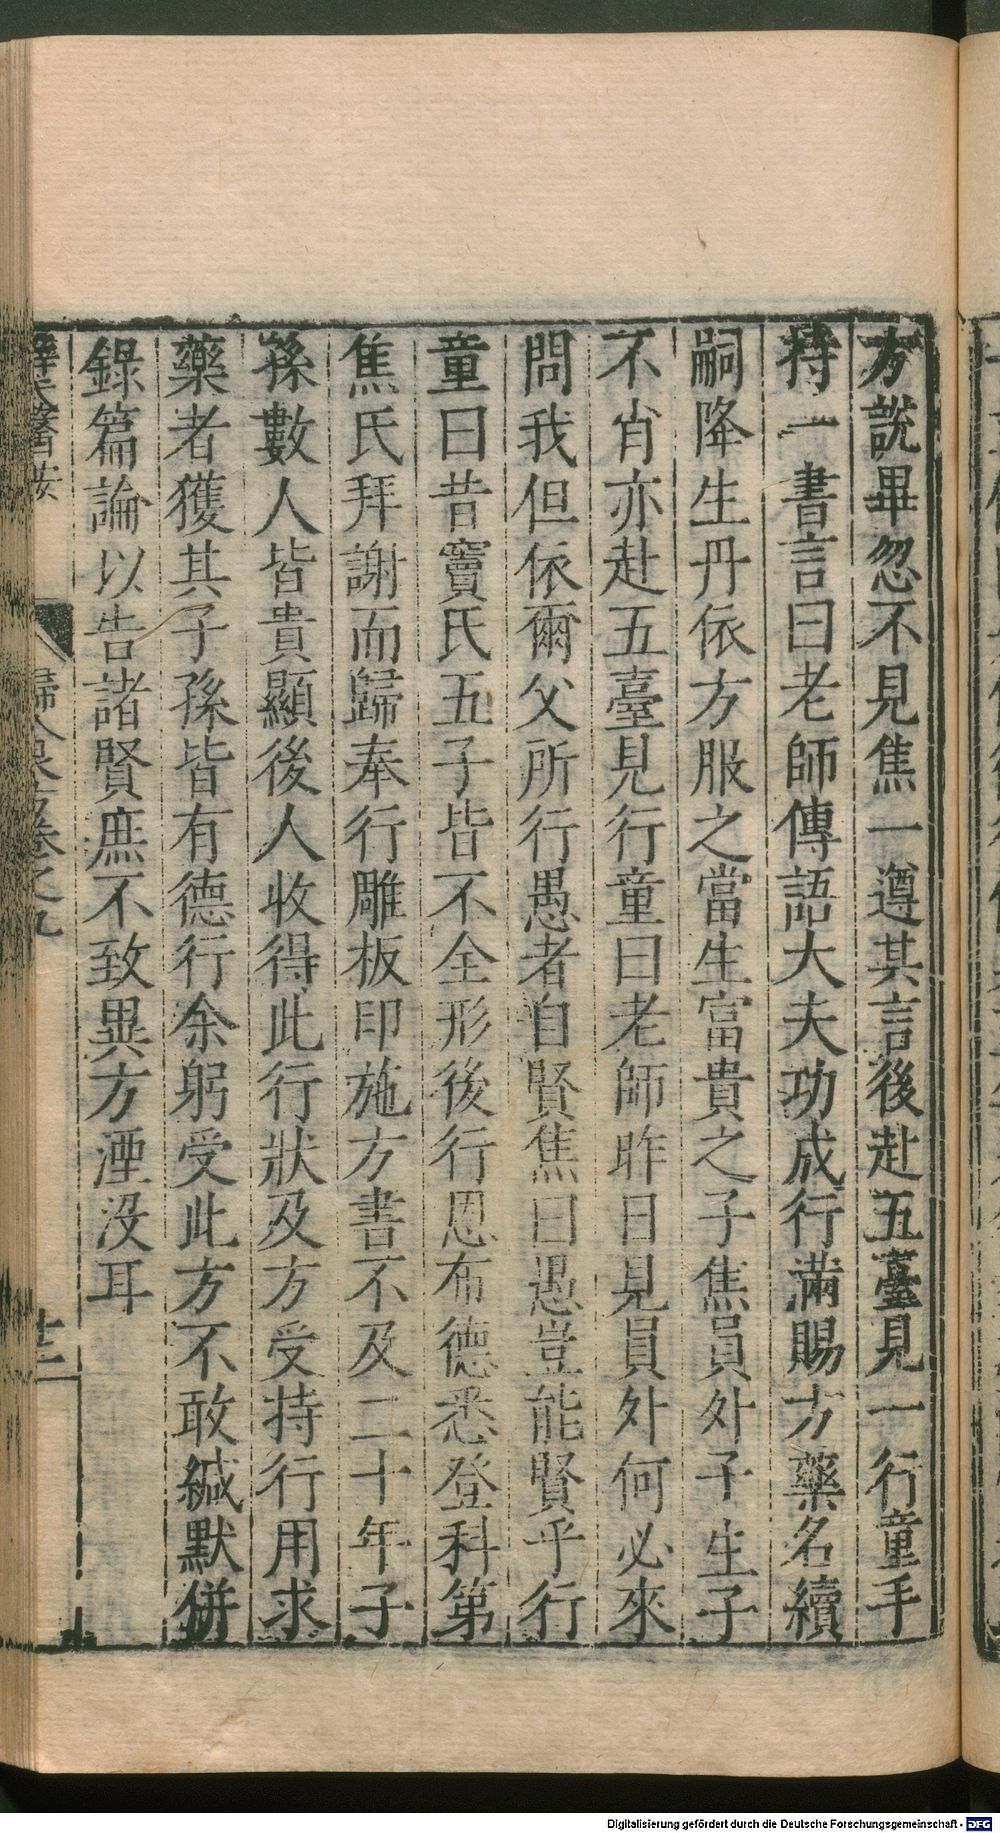 方說畢忽不見焦一遵其言後赴五臺見一行童手
持一書言曰老師傳語大夫功成行滿賜方藥名續
嗣降生丹依方服之當生富貴之子焦員外子生子
不肖亦赴五臺見行童曰老師昨日見員外何必來
問我但依爾父所行愚者自賢焦曰愚豈能賢乎行
童曰昔竇氏五子皆不全形後行恩布德悉登科第
焦氏拜謝而歸奉行雕板印施方書不及二十年子
孫數人皆貴顯後人收得此行狀及方受持行用求
藥者獲其子孫皆有德行余躬受此方不敢緘默併
錄篇論以告諸賢庶不致異方湮没耳
薛氏醫按
婦人良方卷之九
十三
Digitalisierung gefördert durch die Deutsche Forschungsgemeinschaft - DFG